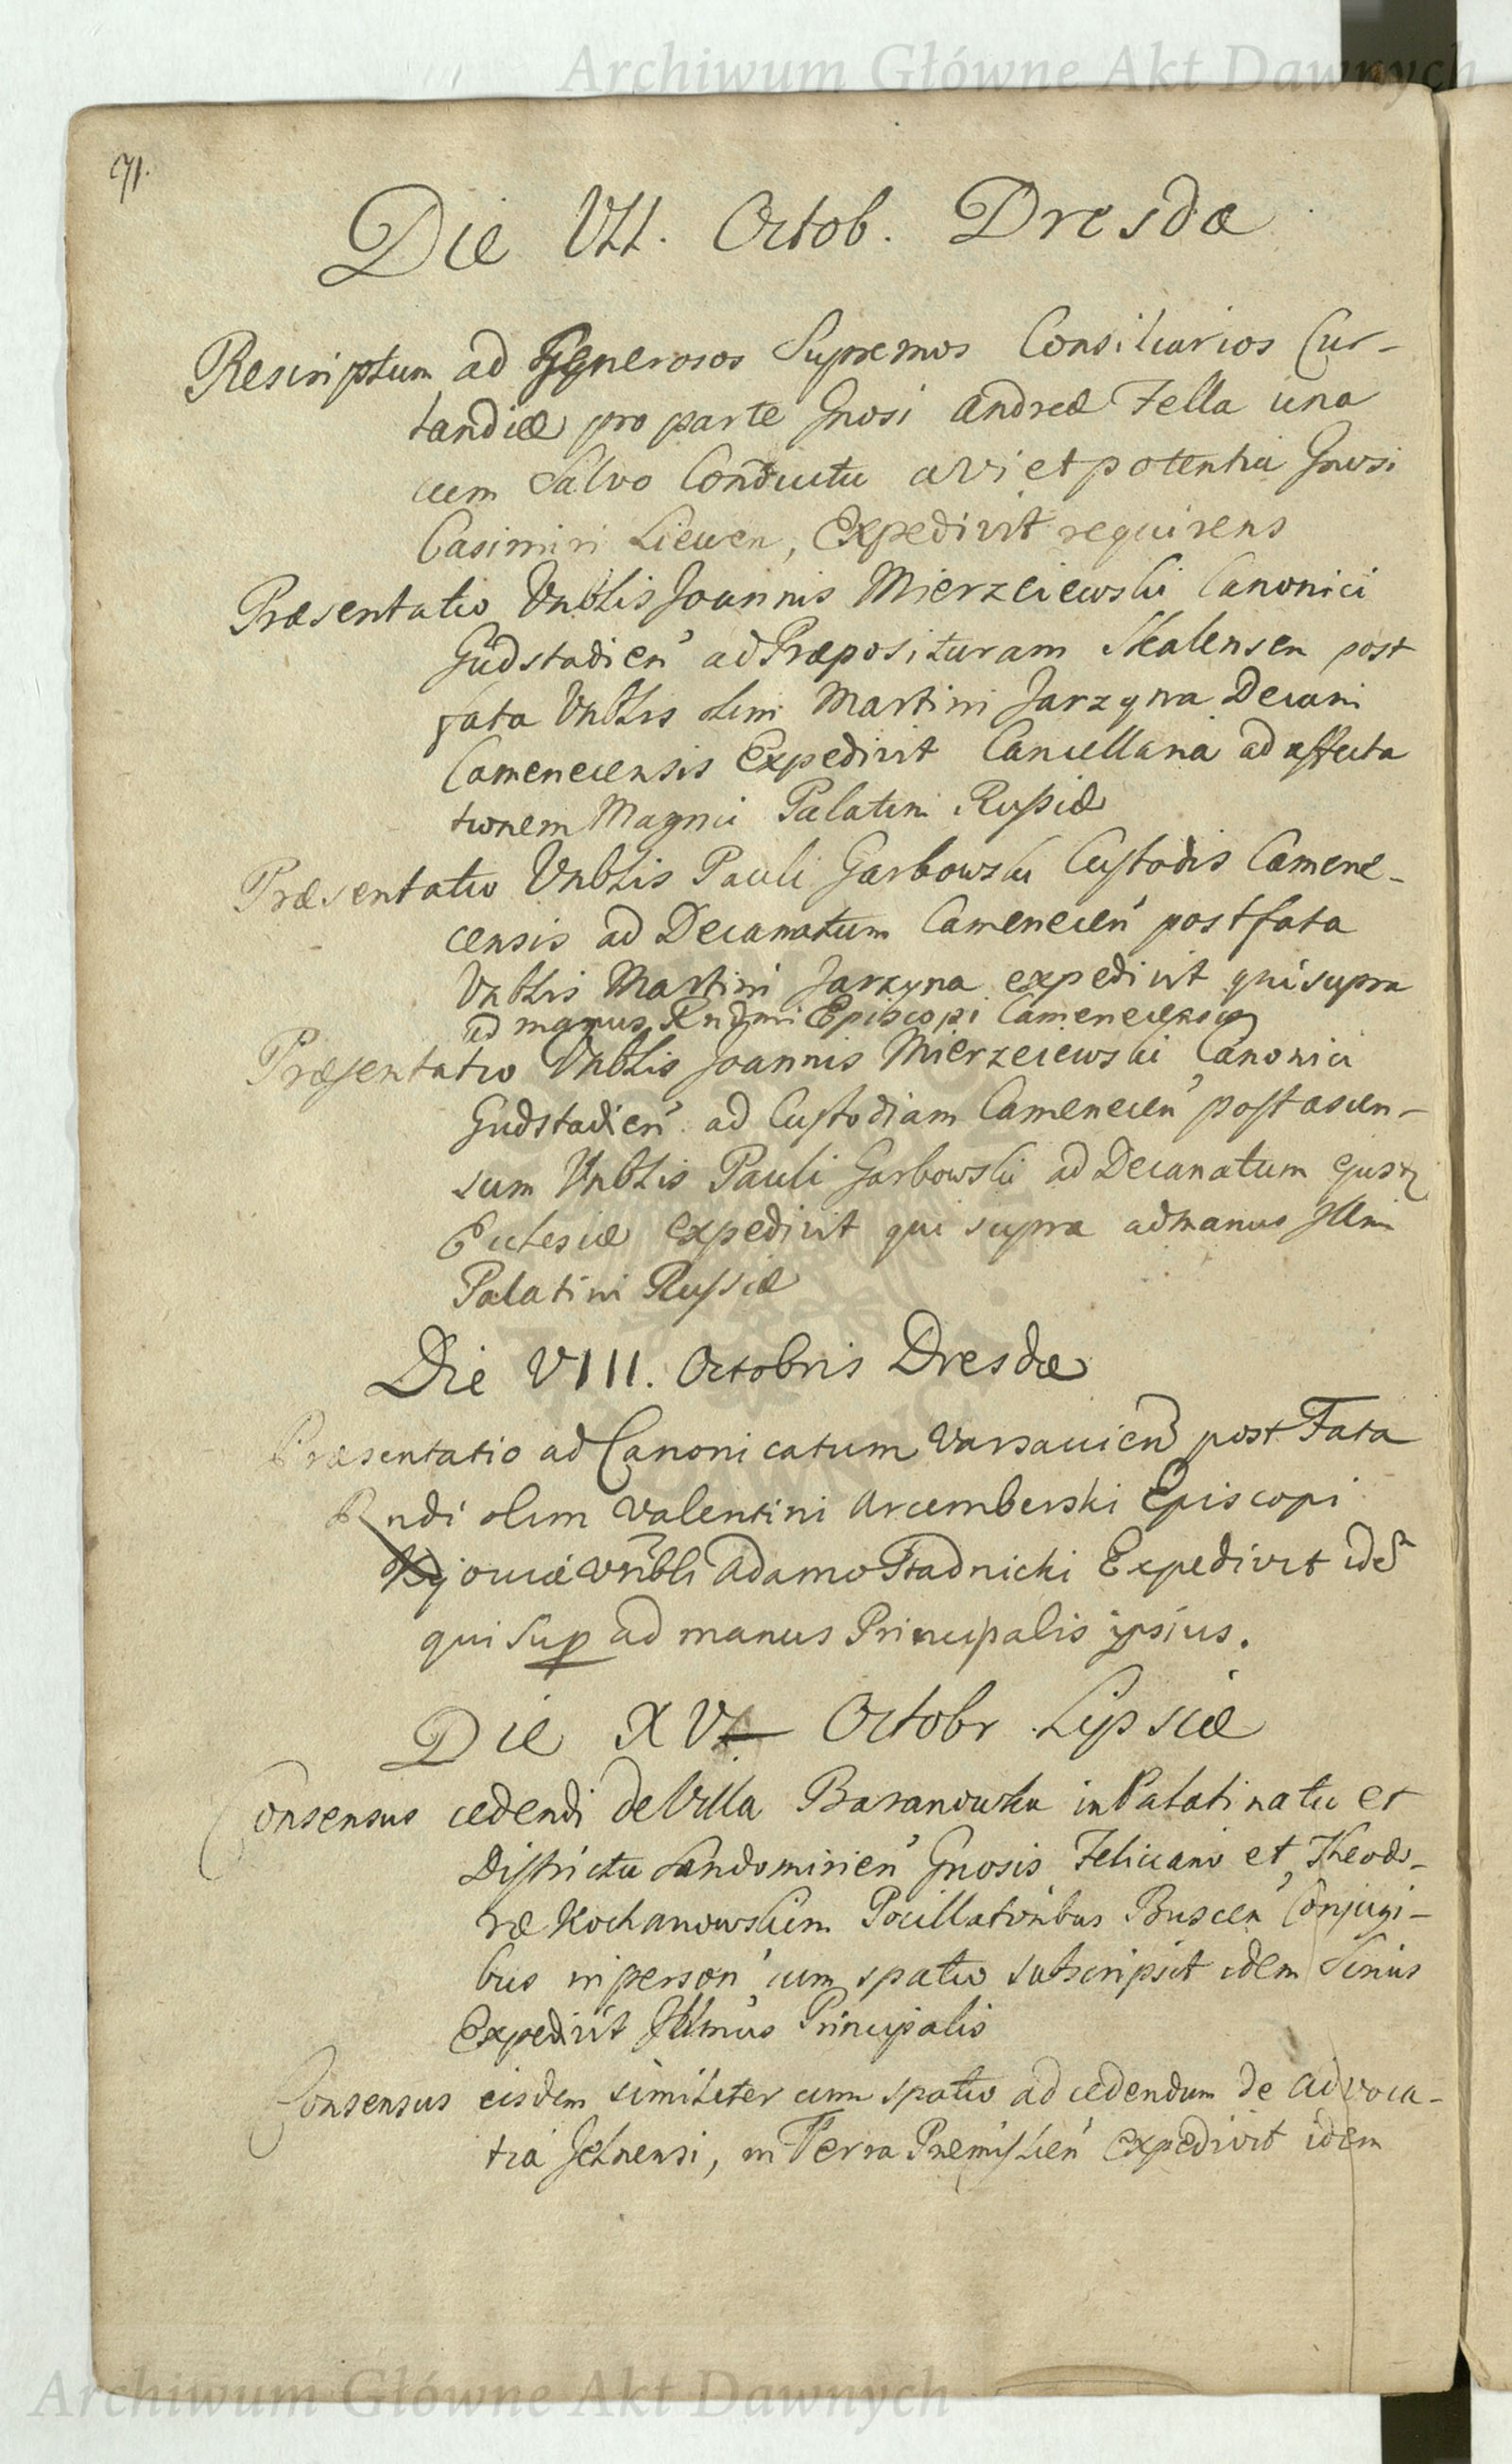 Archiwum Główne Akt Dawnych
71.
Die VII. Octob. Dresdæ
Rescriptum ad Generosos Supremos Consiliarios Cur-
landiæ pro parte Gnosi Andreæ Fella una
cum Salvo Conductu a vi et potentia Gnosi
Casimiri Liewen, Expedivit requirens
Præsentatio Vnblis Joannis Mierzeiewski Canonici
Gudstadien ad Præposituram Skalensen post
fata Vnblis olim Martini Jarzyna Decani
Camenecensis Expedivit Cancellaria ad affecta
tionem Magnci Palatini Russiæ
Præsentatio Vnblis Pauli Garbowski Custodis Camene-
censis ad Decanatum Camenecen post fata
Vnblis Martini Jarzyna expedivit qui supra
ad manus Rndmi Episcopi Camenecensis
Præsentatio Vnblis Joannis Mierzeiewski Canonici
Gudstadien ad Custodiam Camenecen post ascen-
sum Vnblis Pauli Garbowski ad Decanatum ejusd
Ecclesiæ expedivit qui supra ad manus Illmi
Palatini Russiæ
Die VIII. Octobris Dresdæ
Præsentatio ad Canonicatum Varsavien post Fata
Rndi olim Valentini Arcemberski Episcopi
Kijoviæ Vnbli Adamo Stadnicki Expedivit ide
qui sup ad manus Principalis ipsius.
Die XV Octobr Lipsiæ
Consensus cedendi de Villa Baranowka in Palatinatu et
Districtu Sandomirien Gnosis Feliciano et Theodo-
ræ Kochanowskim Pocillatoribus Buscen Conjugi-
bus in person cum spatio subscripsit idem Sernus
Expedivit Illmus Principalis
Consensus eisdem similiter cum spatio ad cedendum de advoca-
tia Jelnensi, in Terra Premislien expedivit idem
Archiwum Główne Akt Dawnych